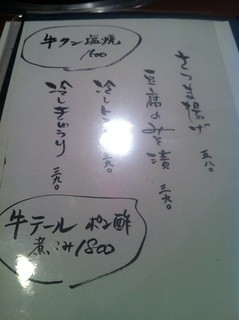 さつま揚げ 三八〇
豆腐のみそ漬 三九〇
冷しトマト 三九〇
冷しきゅうり 三九〇
牛タン塩焼
1600
牛テール ポン酢
煮込み 1800